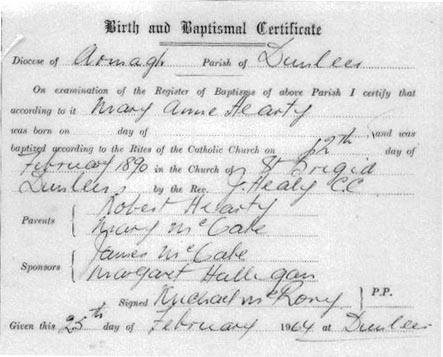 Birth and Baptismal Certificate
Diocese of Armagh Parish of Dunleer
On examination of the Register of Baptisms of above Parish I certify that
according to it Mary Anne Hearty
was born on day of and was
baptized according to the Rites of the Catholic Church on 12th day of
February 1890 in the Church of St Brigid
Dunleer by the Rev. J. Healy C.C.
Parents Robert Hearty
Mary McCabe
Sponsors James McCabe
Margaret Halligan
Signed Michael McRory P.P.
Given this 25th day of February 1964 at Dunleer